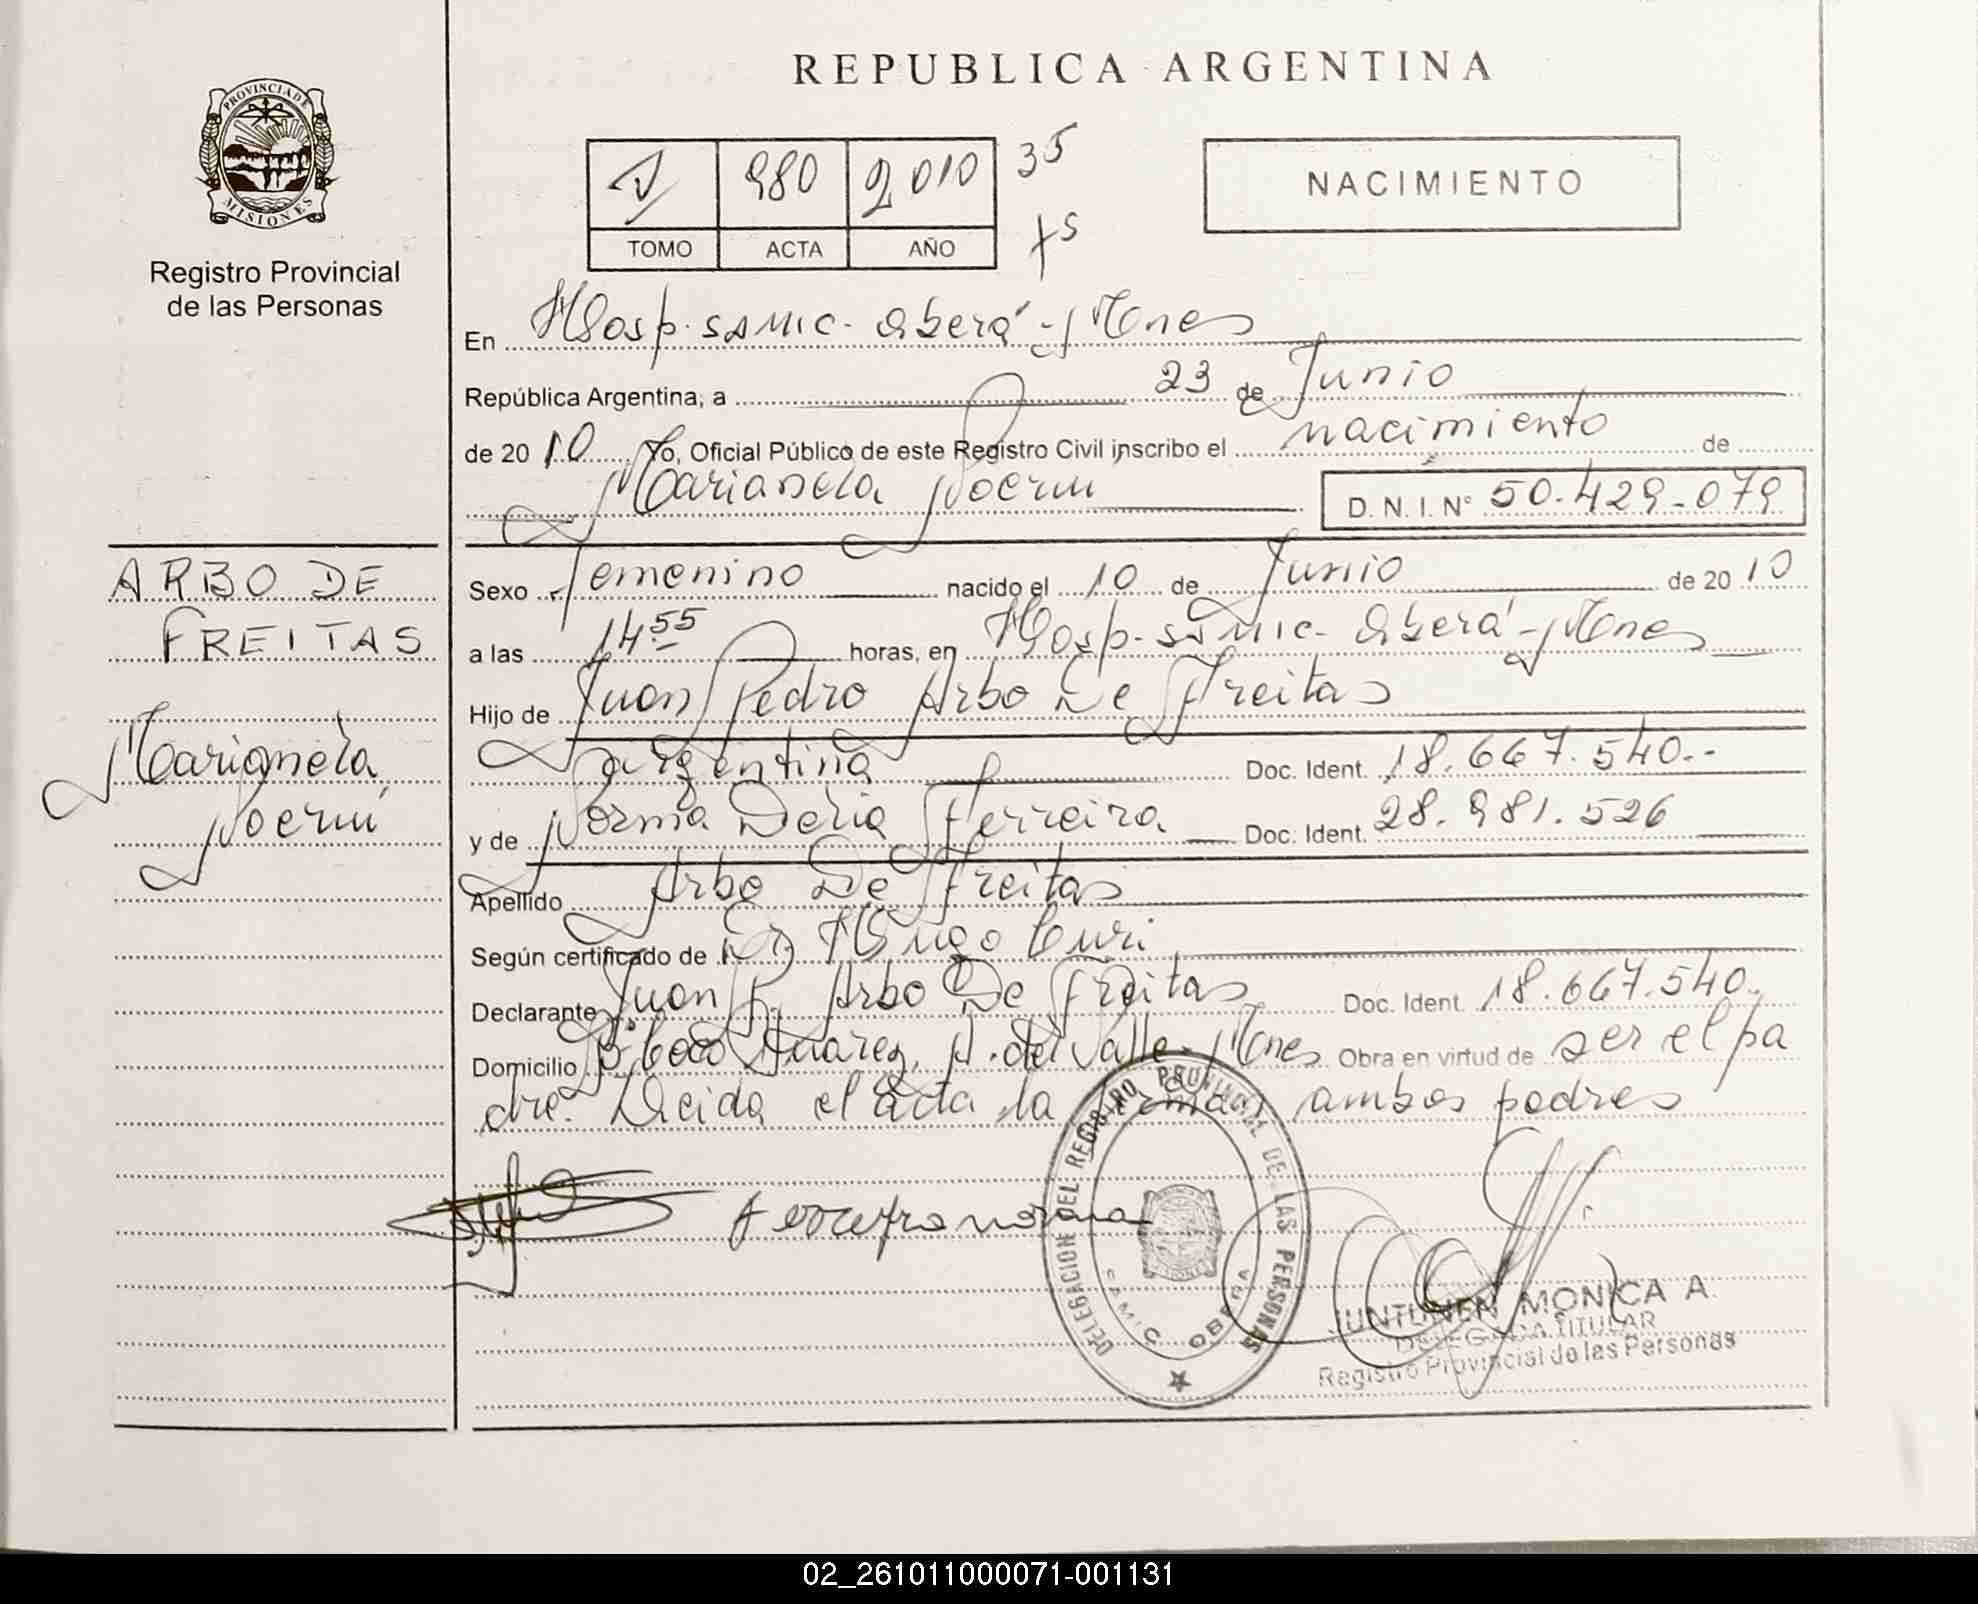 REPUBLICA ARGENTINA
PROVINCIA DE
MISIONES
Registro Provincial
de las Personas
V 980 2010 35
TOMO ACTA AÑO
NACIMIENTO
En Hosp. SAMIC - Oberá - Mnes
República Argentina, a 23 de Junio
de 2010 Yo, Oficial Público de este Registro Civil inscribo el nacimiento de
Marianela Noemi D. N. I. N° 50.429.079
ARBO DE
FREITAS
Marianela
Noemí
Sexo Femenino nacido el 10 de Junio de 2010
a las 14.55 horas, en Hosp. SAMIC - Oberá - Mnes
Hijo de Juan Pedro Arbo De Freitas
Argentina Doc. Ident. 18.667.540.-
y de Norma Delia Ferreira Doc. Ident. 28.981.526
Apellido Arbo De Freitas
Según certificado de Dr Hugo Curi
Declarante Juan P. Arbo De Freitas Doc. Ident. 18.667.540.
Domicilio B° Suarez, A. del Valle - Mnes Obra en virtud de ser el pa
dre. Leida el acta la firman ambos padres
Ferreira norma
DELEGACION DEL REGISTRO PROVINCIAL DE LAS PERSONAS
SAMIC OBERA
JUNTUNEN MONICA A.
DELEGADA TITULAR
Registro Provincial de las Personas
02_261011000071-001131